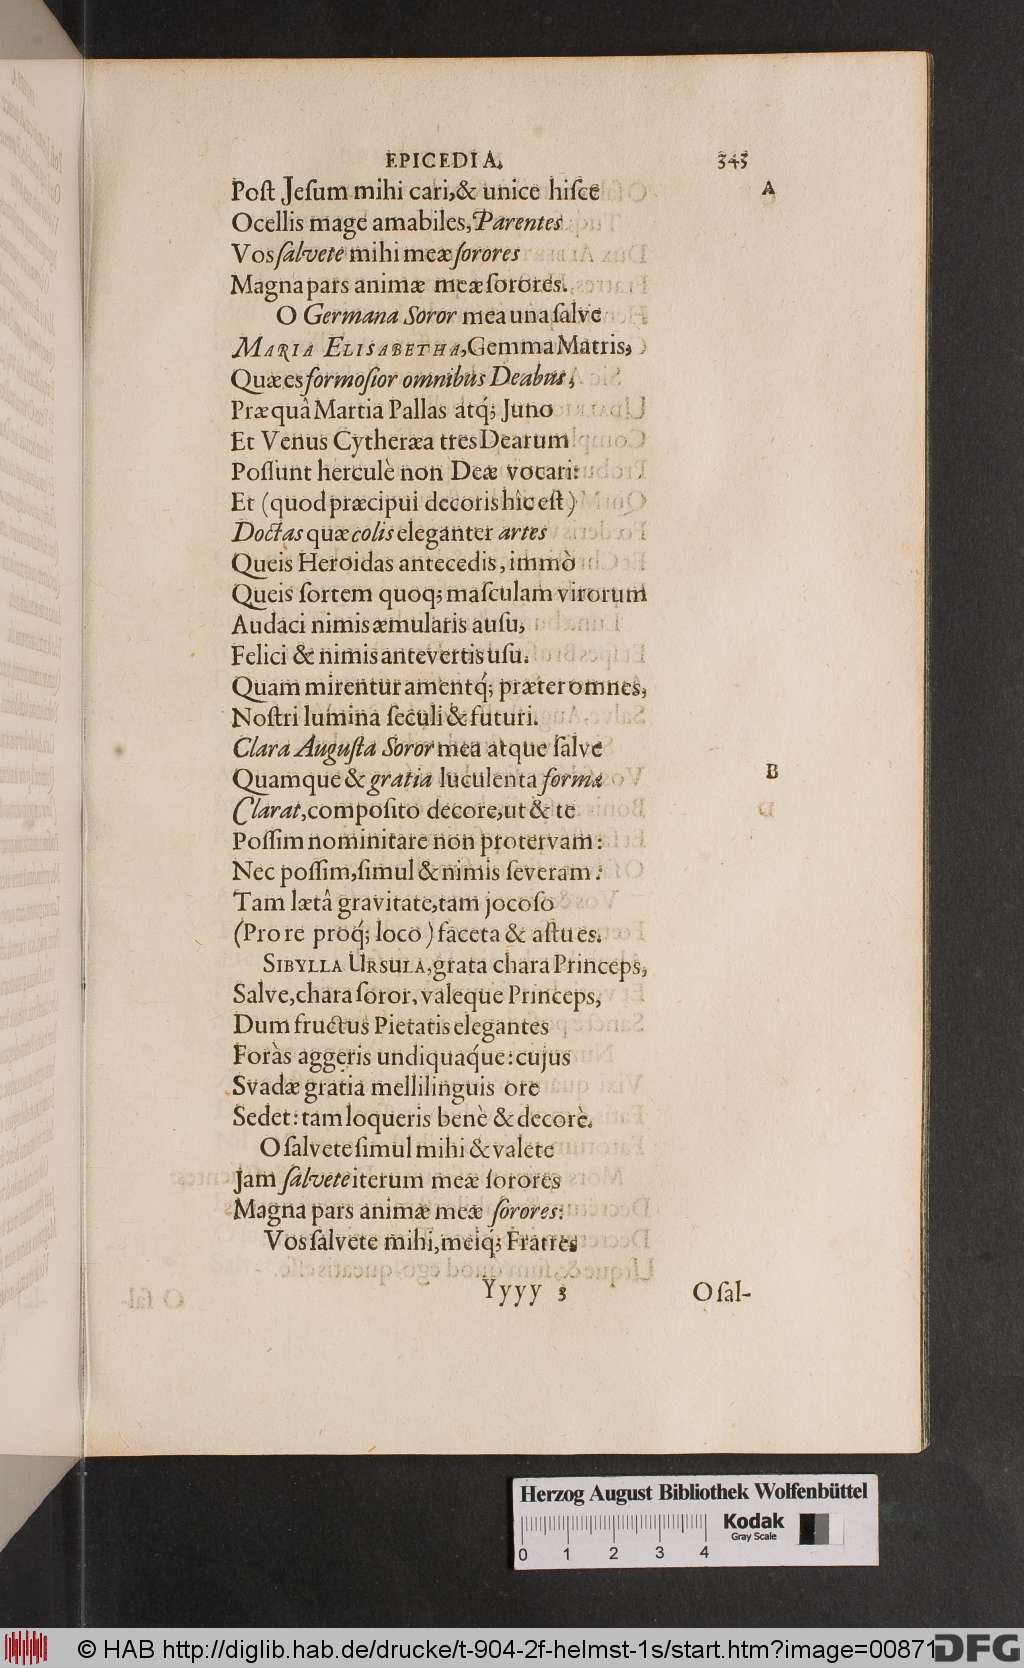 EPICEDIA. 343
Poſt Jeſum mihi cari,& unice hiſce A
Ocellis mage amabiles, Parentes
Vos ſalvete mihi meæ ſorores
Magna pars animæ meæ ſorores.
O Germana Soror mea una ſalve
MARIA ELISABETHA, Gemma Matris,
Quæ es formoſior omnibus Deabus,
Præquâ Martia Pallas atq́; Juno
Et Venus Cytheræa tres Dearum
Poſſunt herculè non Deæ vocari:
Et (quod præcipui decoris hîc eſt)
Doctas quæ colis eleganter artes
Queis Heroidas antecedis, immò
Queis ſortem quoq; maſculam virorum
Audaci nimis æmularis auſu,
Felici & nimis antevertis uſu.
Quam mirentur amentq́; præter omnes,
Noſtri lumina ſeculi & futuri.
Clara Auguſta Soror mea atque ſalve
Quamque & gratia luculenta formæ B
Clarat, compoſito decore, ut & te
Poſſim nominitare non protervam:
Nec poſſim, ſimul & nimis ſeveram:
Tam lætâ gravitate, tam jocoſo
(Pro re proq́; loco) faceta & aſtu es.
SIBYLLA URSULA, grata chara Princeps,
Salve, chara ſoror, valeque Princeps,
Dum fructus Pietatis elegantes
Foràs aggeris undiquaq́ue: cujus
Svadæ gratia mellilinguis ore
Sedet: tam loqueris benè & decorè.
O ſalvete ſimul mihi & valete
Jam ſalvete iterum meæ ſorores
Magna pars animæ meæ ſorores:
Vos ſalvete mihi, meiq́; Fratres
Yyyy 3 O ſal-
Herzog August Bibliothek Wolfenbüttel
Kodak
Gray Scale
0 1 2 3 4
© HAB http://diglib.hab.de/drucke/t-904-2f-helmst-1s/start.htm?image=00871
DFG